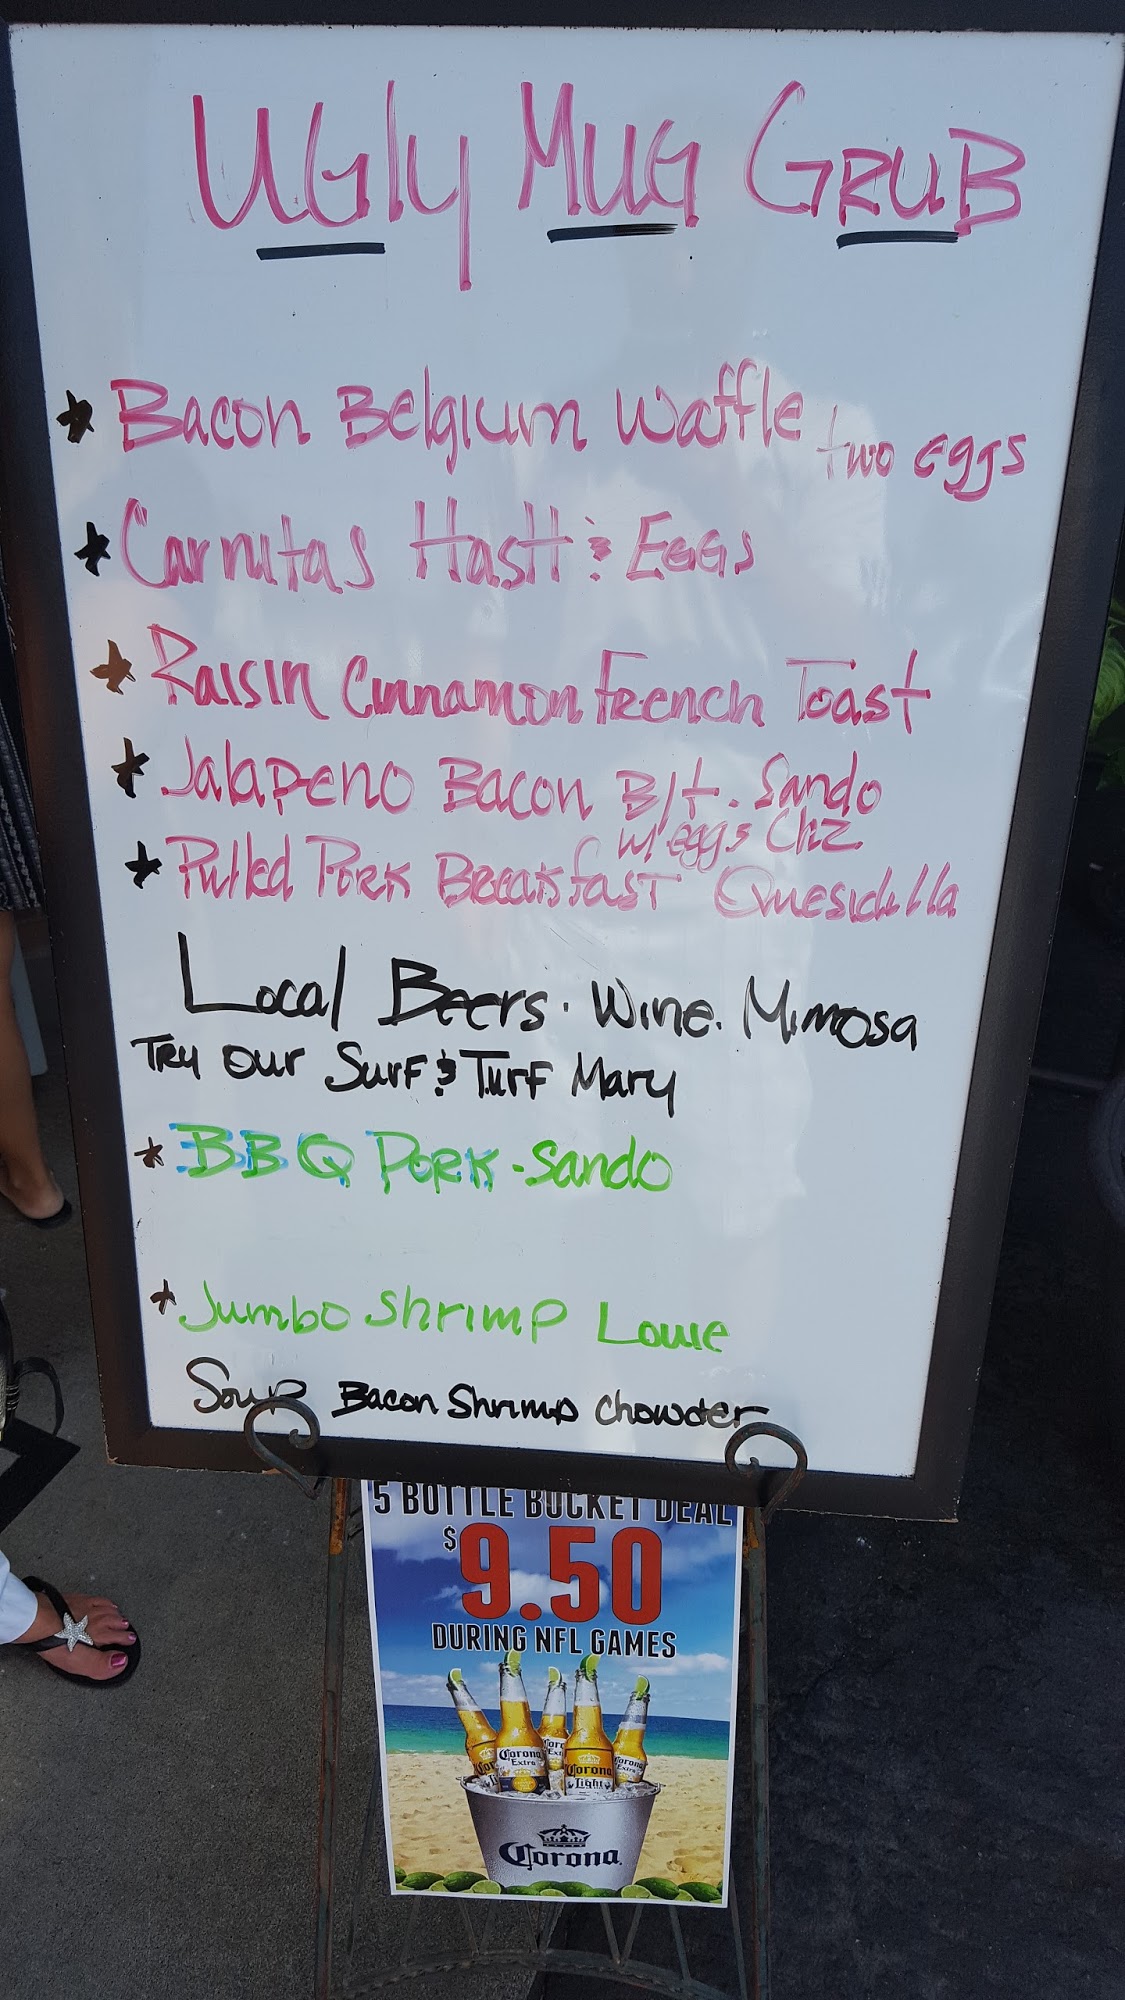 UGly MUG GRUB
Bacon Belgium Waffle two eggs
Carnitas Hash & Eggs
Raisin Cinnamon French Toast
Jalapeno Bacon B/t. Sando
w/ eggs Chz
Pulled Pork Breakfast Quesidilla
Local Beers. Wine. Mimosa
Try our Surf & Turf Mary
BBQ Pork - Sando
Jumbo Shrimp Louie
Soup Bacon Shrimp Chowder
5 BOTTLE BUCKET DEAL
$9.50
DURING NFL GAMES
Corona Extra
Corona Light
Corona Extra
Corona